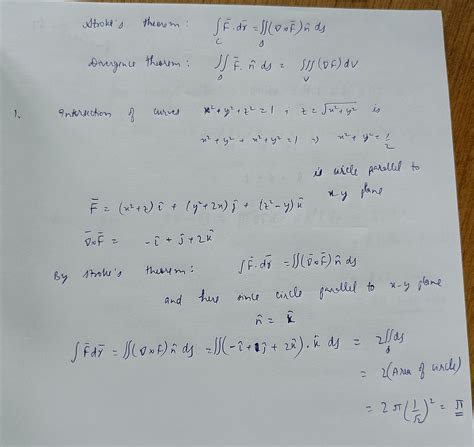 Stroke's theorem: ∫_C F̄·dr̄ = ∬_S (∇×F̄) n̂ ds
Divergence theorem: ∬_S F̄·n̂ ds = ∭_V (∇F̄) dV
1. Intersection of curves x²+y²+z²=1 ; z=√(x²+y²) is
x²+y²+x²+y²=1 ⇒ x²+y²=1/2
is circle parallel to
x-y plane
F̄ = (x²+z) î + (y²+2x) ĵ + (z²-y) k̂
∇̄×F̄ = -î + ĵ + 2k̂
By stroke's theorem: ∫F̄·dr̄ = ∬(∇̄×F̄) n̂ ds
and here since circle parallel to x-y plane
n̂ = k̂
∫F̄dr̄ = ∬(∇×F̄) n̂ ds = ∬(-î + ĵ + 2k̂)·k̂ ds = 2∬_S ds
= 2(Area of circle)
= 2π(1/√2)² = π